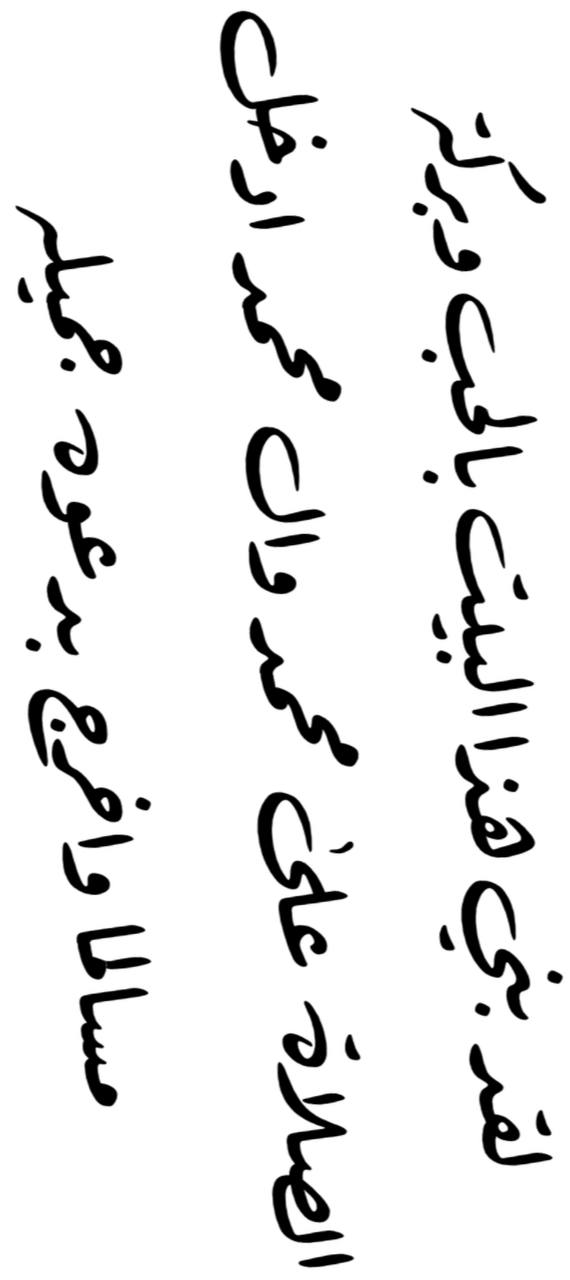 لقد بني هذا البيت بالحب وبركة
الصلاة علىٰ محمد وال محمد ادخل
مسالما واخرج بدعوه جميله